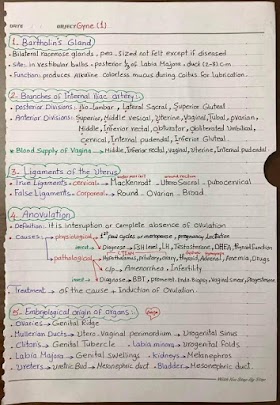 DATE SUBJECT Gyne. (1)
1- Bartholin's Gland
• Bilateral Racemose glands, pea-sized not felt except if diseased
• Site: in vestibular bulbs - posterior 1/3 of Labia Majora - duct (2-8) cm
• Function: produces alkaline colorless mucus during Coitus for lubrication.
2- Branches of Internal iliac artery:-
• posterior Divisions: Ilio-lumbar, Lateral Sacral, Superior Gluteal
• Anterior Divisions: Superior, Middle vesical, Uterine, Vaginal, Tubal, ovarian,
Middle, Inferior rectal, obturator, obliterated Umbilical,
cervical, Internal pudendal, Inferior Gluteal
* Blood Supply of Vagina → Middle, Inferior rectal, vaginal, Uterine, Internal pudendal
3- Ligaments of the Uterus
• True Ligaments - cervical → Mackenrodt - Utero Sacral - pubocervical
• False Ligaments - corporeal → Round - Ovarian - Broad
4- Anovulation
• Definition: it is interruption or complete absence of ovulation
• Causes: physiological → 1st few cycles or menopause, pregnancy, lactation
invest → Diagnose → FSH level, LH, Testosterone, DHEA, thyroid function
pathological → hypothalamus, pituitary, ovary, thyroid, Adrenal, Anemia, Drugs
c/p → Amenorrhea - Infertility
invest → Diagnose → BBT, premenst. Endo. Biopsy, Vaginal smear, progesterone
Treatment → of the cause + Induction of Ovulation.
5- Embryological origin of organs:-
• Ovaries → Genital Ridge
• Mullerian Ducts → Utero Vaginal perimordium → Urogenital Sinus
• Clitoris → Genital Tubercle - Labia minora → urogenital Folds
• Labia Majora → Genital swellings - kidneys → Metanephros
• Ureters → Uretric Bud → Mesonephric duct - Bladder → Mesonephric duct.